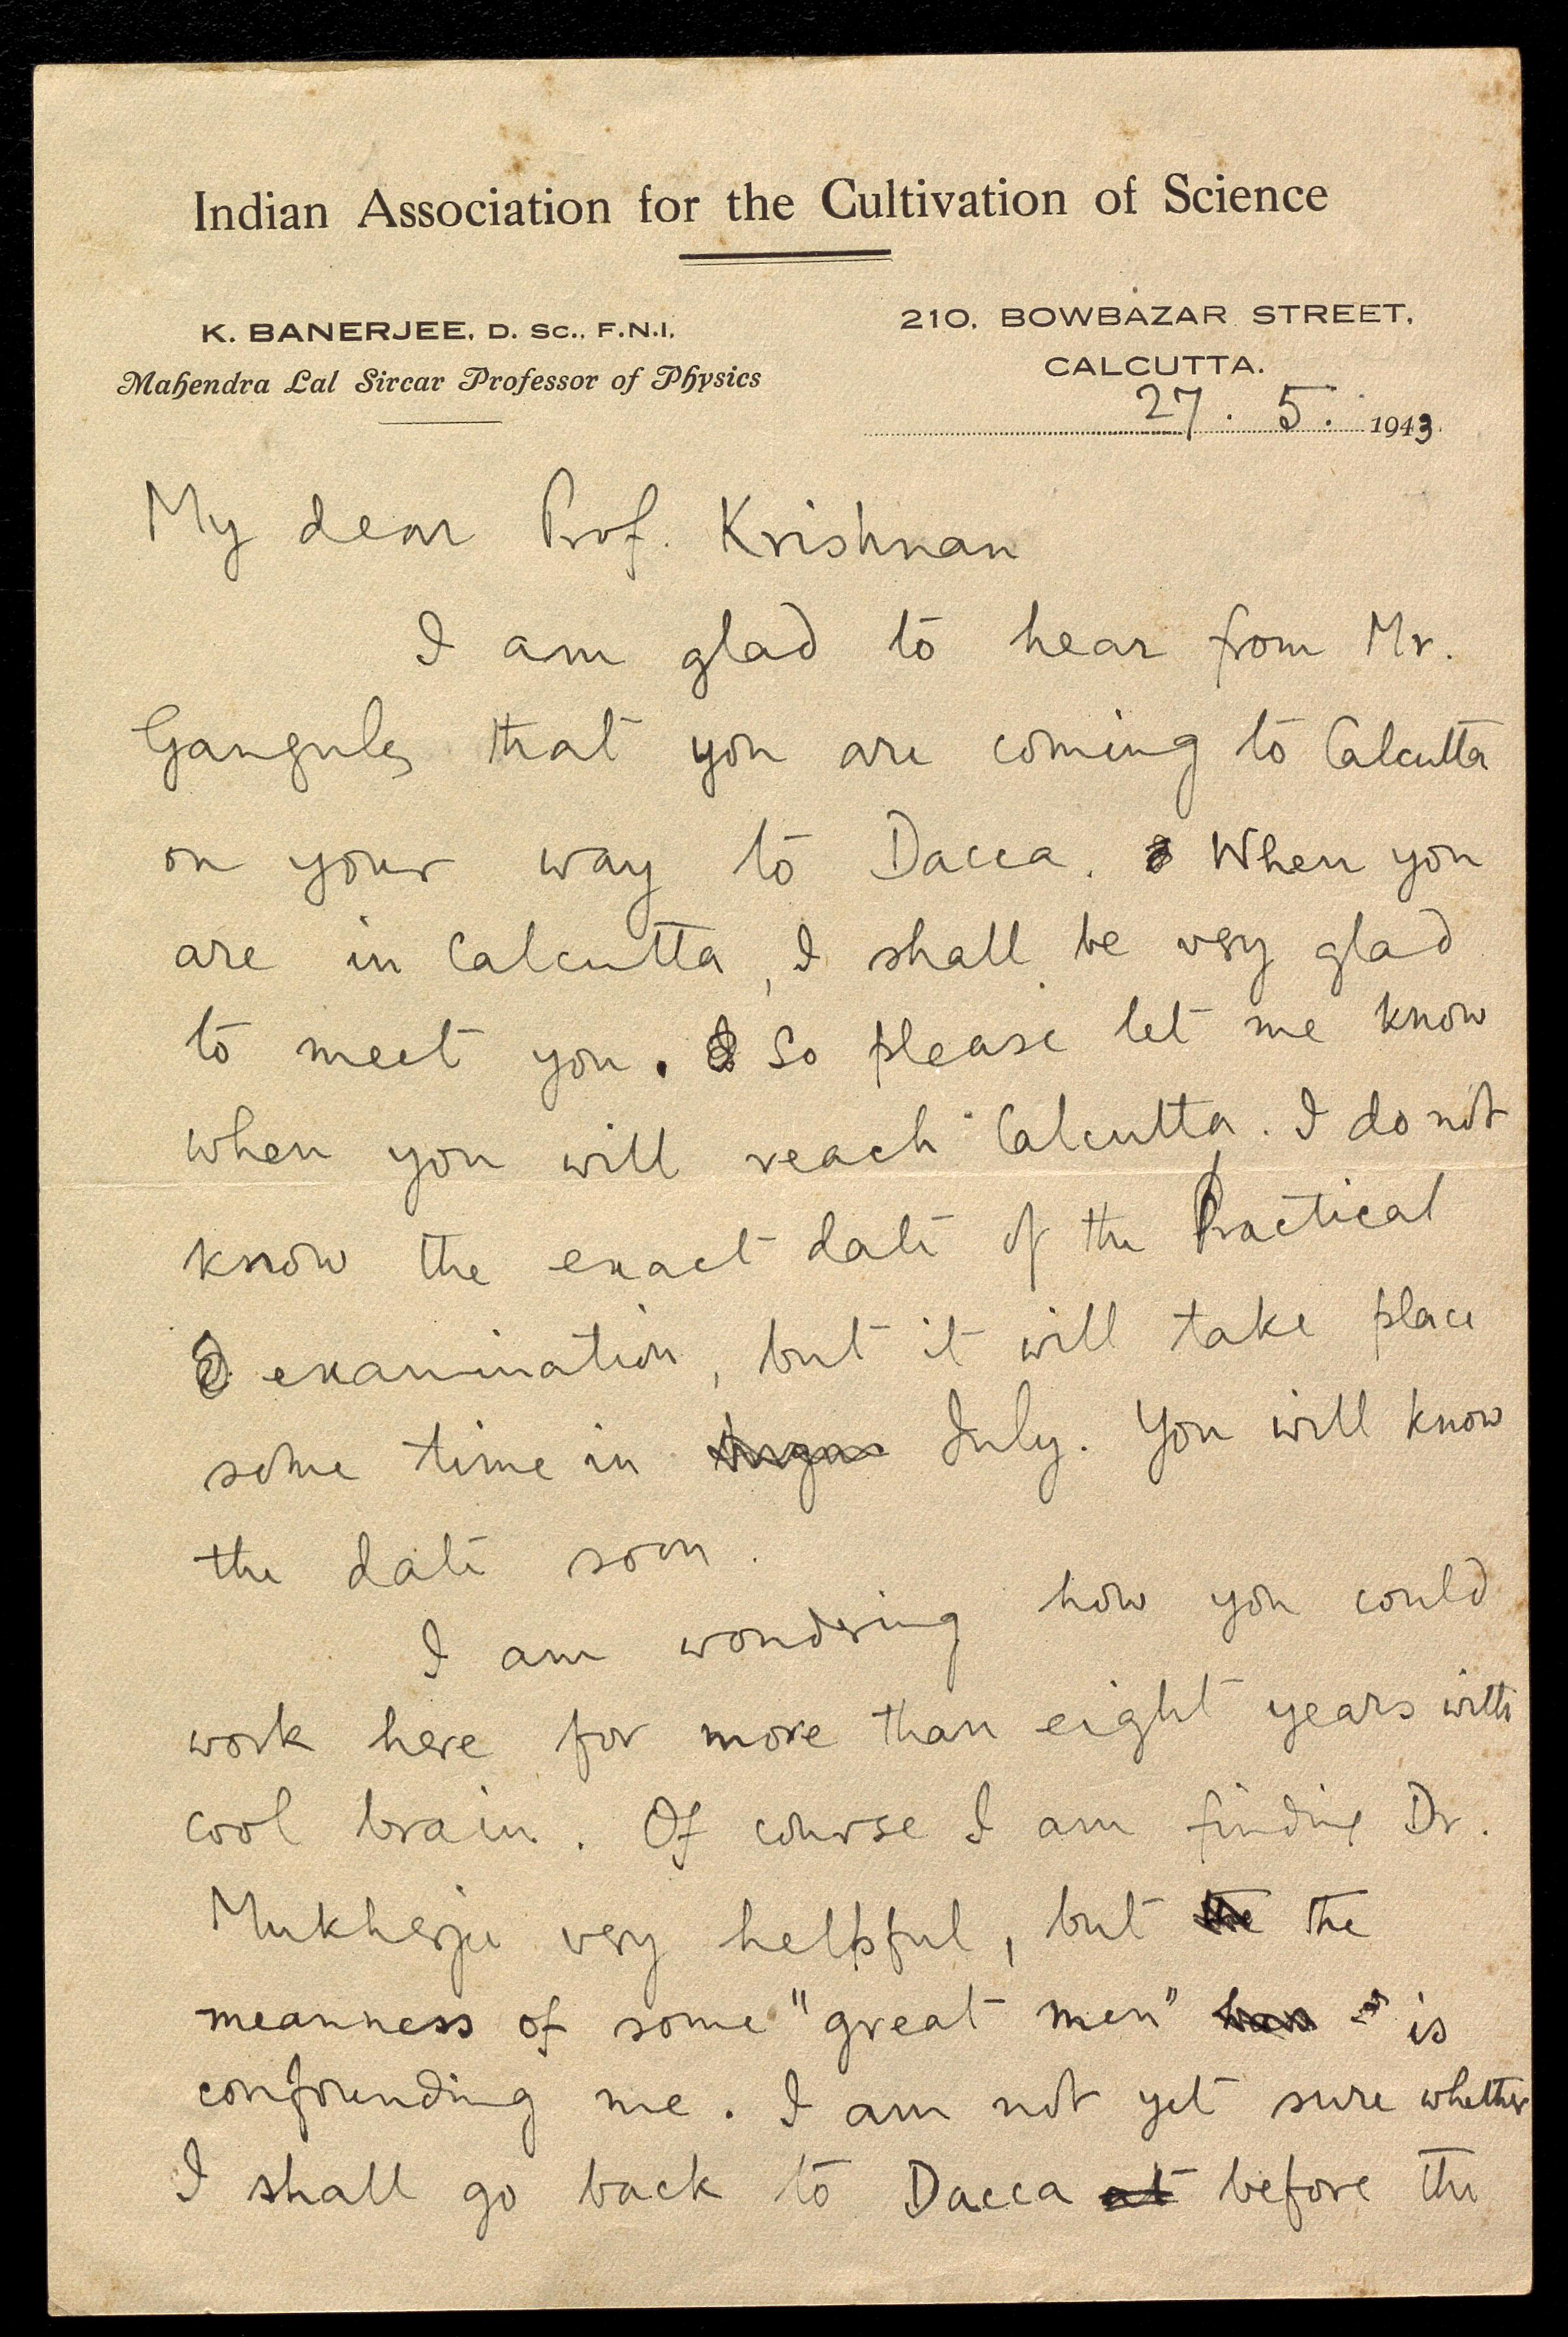 Indian Association for the Cultivation of Science
K. BANERJEE, D. Sc., F.N.I.
Mahendra Lal Sircar Professor of Physics
210, BOWBAZAR STREET,
CALCUTTA.
27. 5. 1943.
My dear Prof. Krishnan
I am glad to hear from Mr.
Ganguly that you are coming to Calcutta
on your way to Dacca. When you
are in Calcutta, I shall be very glad
to meet you. So please let me know
when you will reach Calcutta. I do not
know the exact date of the Practical
examination, but it will take place
some time in July. You will know
the date soon.
I am wondering how you could
work here for more than eight years with
cool brain. Of course I am finding Dr.
Mukherjee very helpful, but the the
meanness of some "great men" is
confounding me. I am not yet sure whether
I shall go back to Dacca at before the